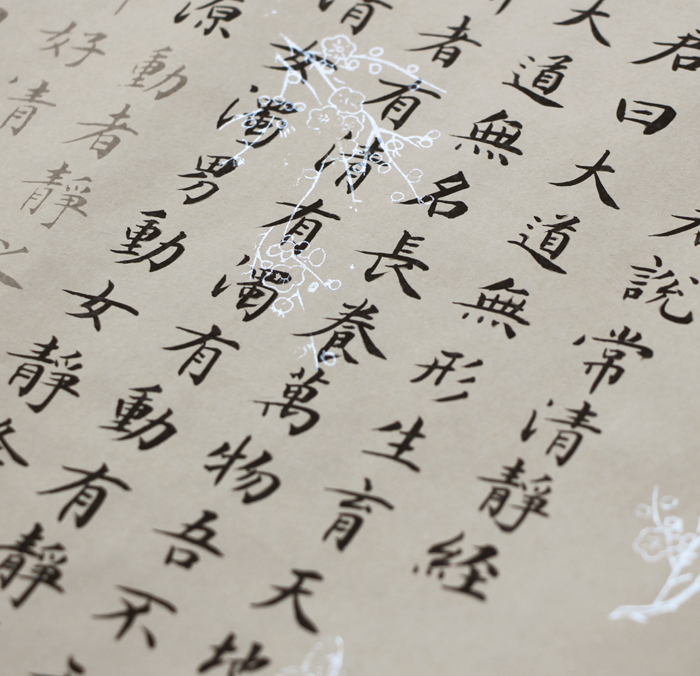 說常清靜経
君曰大道無形生育天地
大道無名長養萬物吾不
者有清有濁有動有靜
清女濁男動女靜
源動者靜之
好清